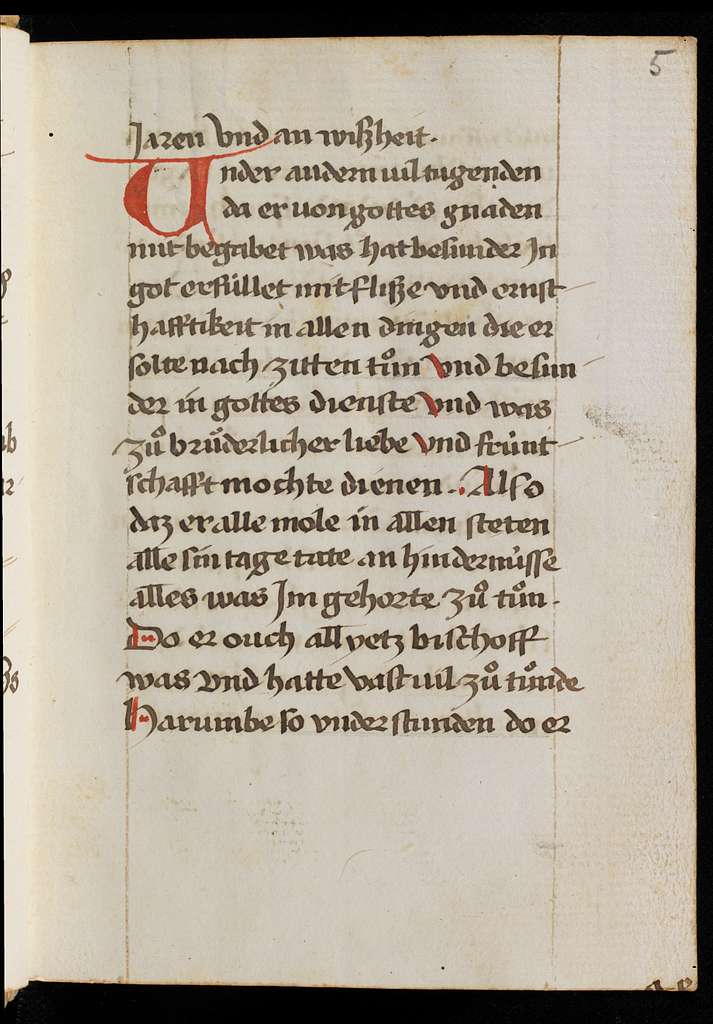 5
Jaren vnd an wißheit.
Vnder andern uil tugenden
da er uon gottes gnaden
mit begabet was hat besunder Jn
got erfüllet mit fliße vnd ernst
hafftikeit in allen dingen die er
solte nach zitten tůn vnd besun
der in gottes dienste vnd was
zů brůderlicher liebe vnd frünt
schafft mochte dienen. Also
daz er alle mole in allen steten
alle sin tage tate an hindernüsse
alles was Jm gehorte zů tůn.
Do er ouch all yetz bischoff
was vnd hatte vast uil zů tůnde
Harumbe so vnder stunden do er